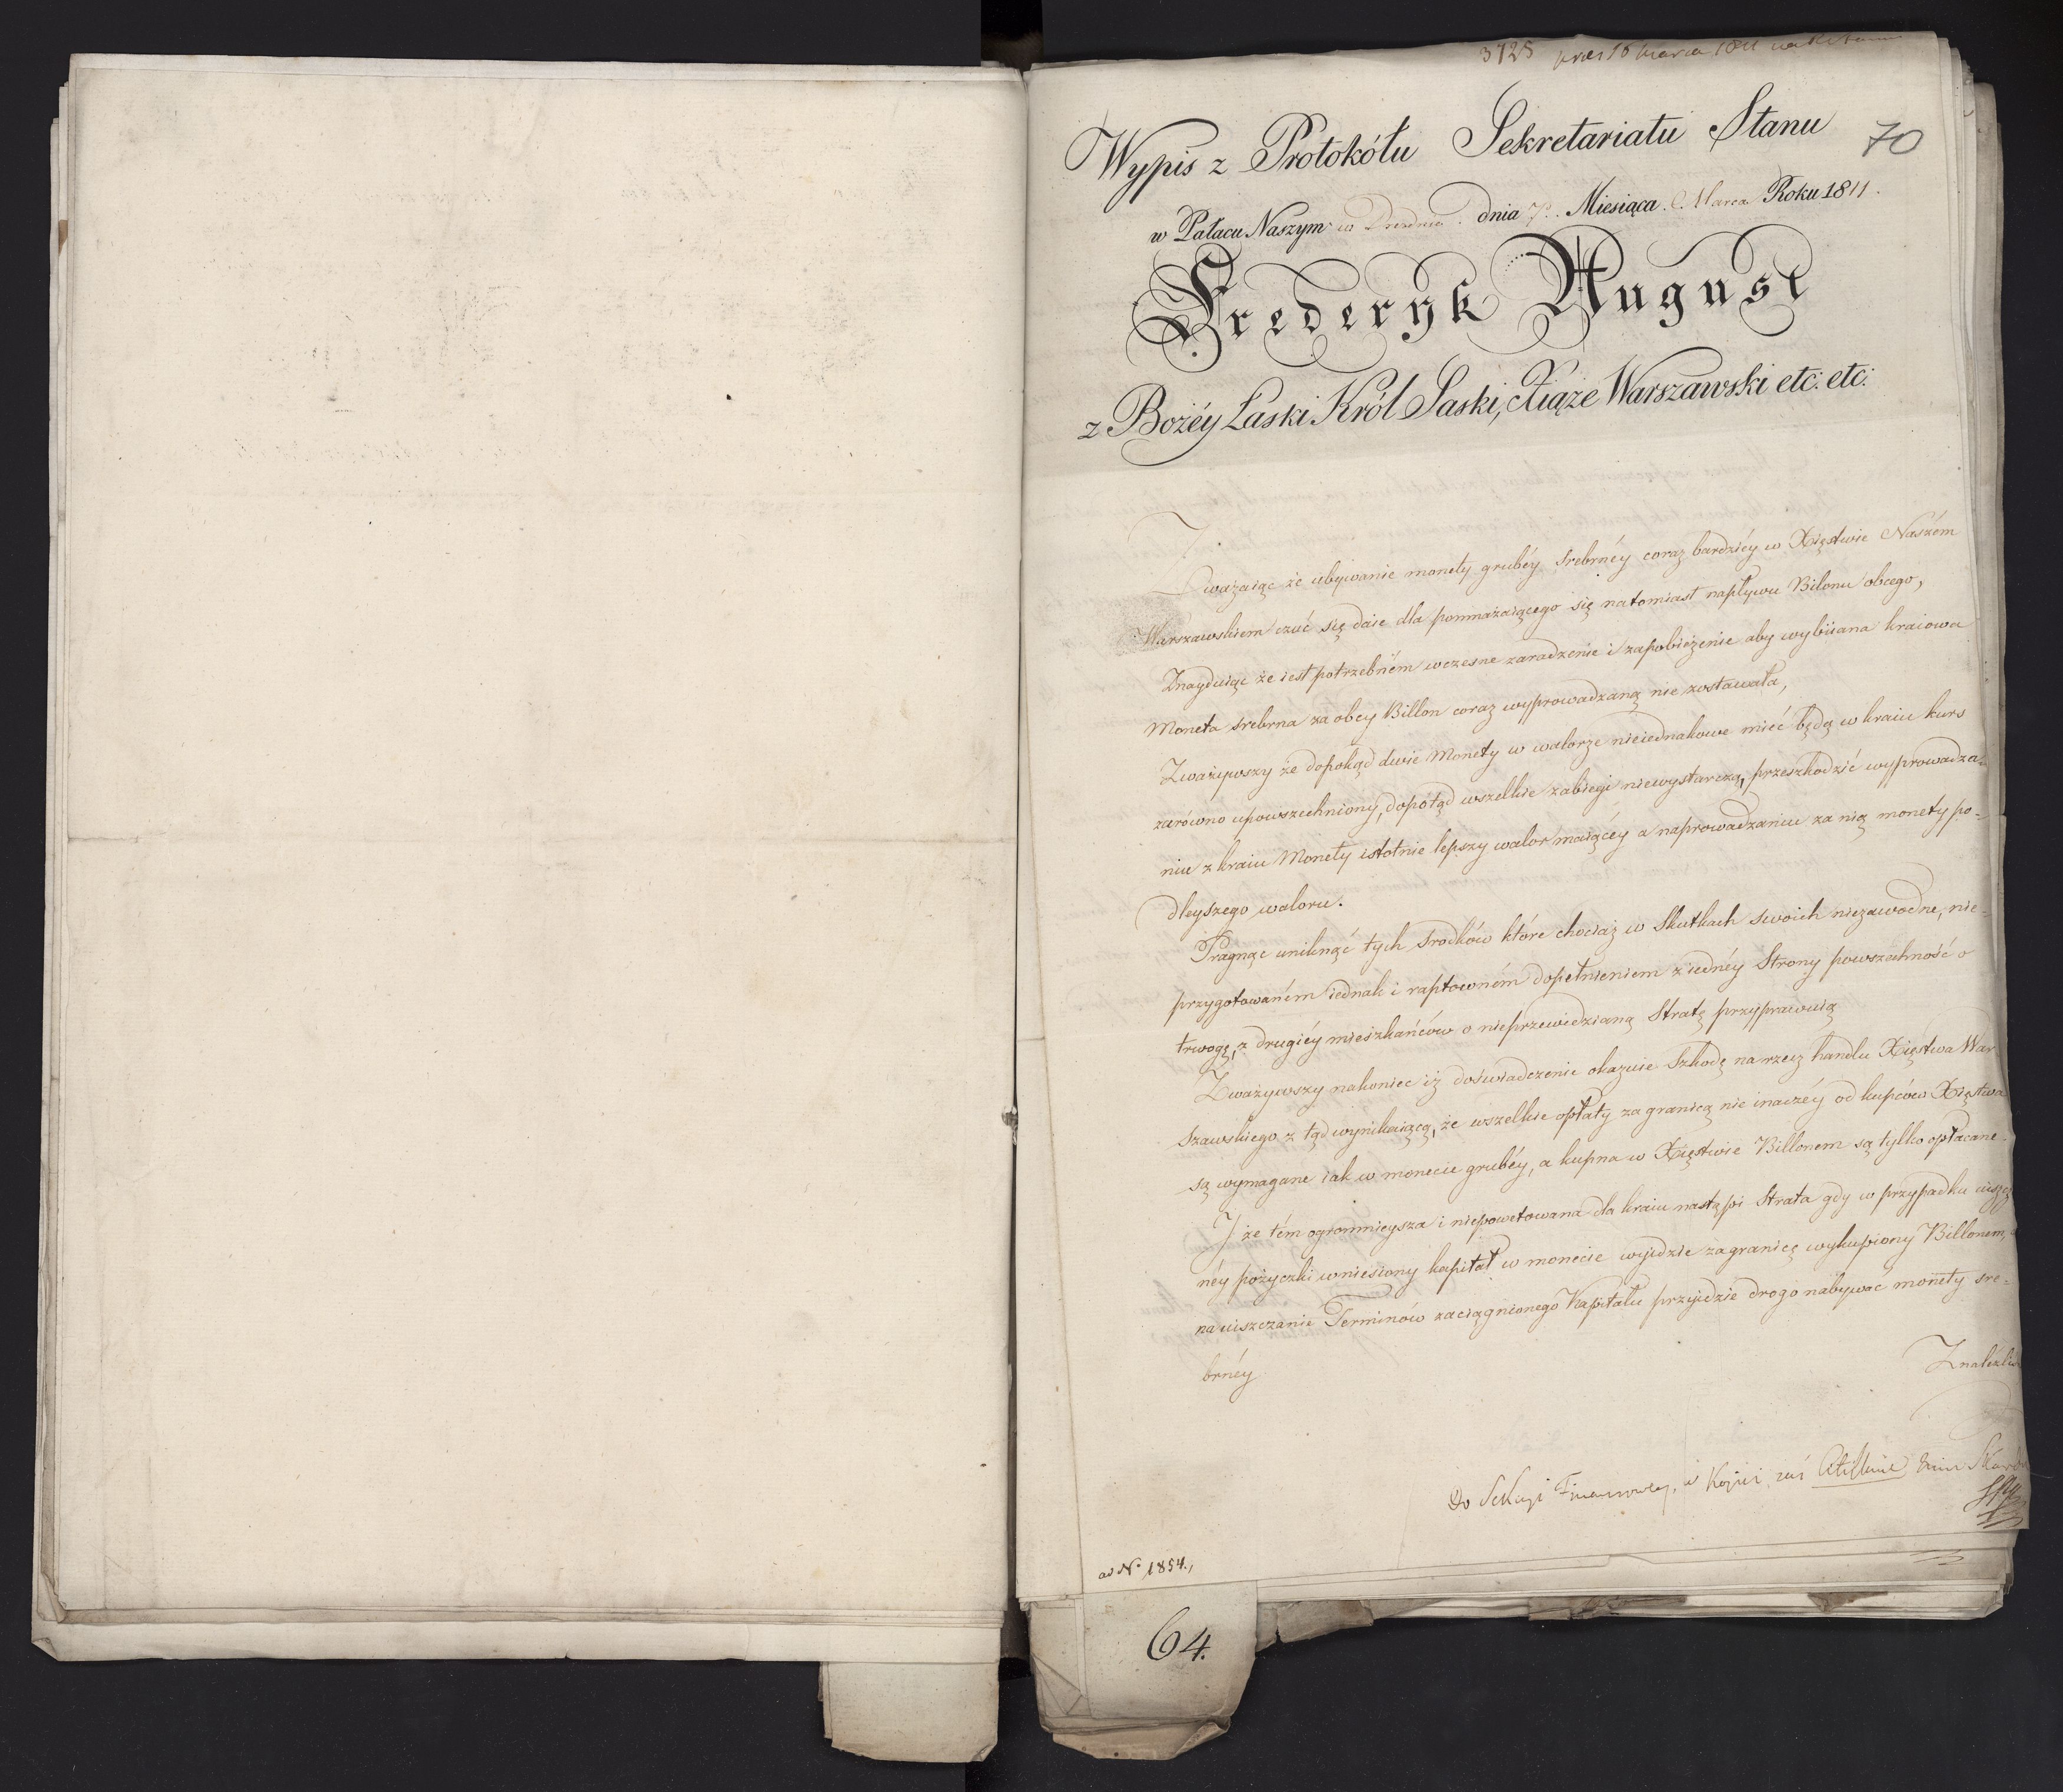 3725 pres 16 Marca 1811
70
Wypis z Protokółu Sekretariatu Stanu
w Pałacu Naszym w Dreznie dnia 7. Miesiąca Marca Roku 1811.
Frederyk August
z Bożéy Łaski Król Saski, Xiąże Warszawski etc: etc:
Zważaiąc że ubywanie monety grubéy srebrnéy coraz bardziéy w Xięstwie Naszém
Warszawskiem czuć się daie dla pomnażaiącego się natomiast napływu Bilonu obcego,
Znayduiąc że iest potrzebném wczesne zaradzenie i zapobieżenie aby wybiiana kraiowa
Moneta srebrna za obcy Billon coraz wyprowadzaną nie zostawała,
Zważywszy że dopokąd dwie Monety w walorze nieiednakowe mieć będą w kraiu kurs
zarówno upowszechniony, dopótąd wszelkie zabiegi niewystarczą, przeszkodzić wyprowadza-
niu z kraiu Monety istotnie lepszy walor maiącéy a naprowadzaniu za nią monety po-
dleyszego waloru.
Pragnąc uniknąć tych srodków które chociaż w Skutkach swoich niezawodne, nie-
przygotowaném iednak i raptowném dopełnieniem z iednéy Strony powszechność o
trwogę, z drugiéy mieszkańców o nieprzewidzianą Stratę przyprawuią
Zważywszy nakoniec iż doświadczenie okazuie Szkodę na rzecz handlu Xięstwa War
szawskiego z tąd wynikaiącą, że wszelkie opłaty za granicą nie inaczéy od kupców Xięstwa
są wymagane iak w monecie grubéy, a kupna w Xięstwie Billonem są tylko opłacane.
I że tém ogromnieysza i niepowetowana dla kraiu nastąpi Strata gdy w przypadku uiszcz
néy pożyczki wniesiony kapitał w monecie wyidzie zagranicę wykupiony Billonem,
na uiszczanie Terminów zaciągnionego Kapitału przyidzie drogo nabywać monety sre-
brnéy
Znaleźliś
Do Sekcyi Finansowey, w Kopii zaś
ad N° 1854.,
64.